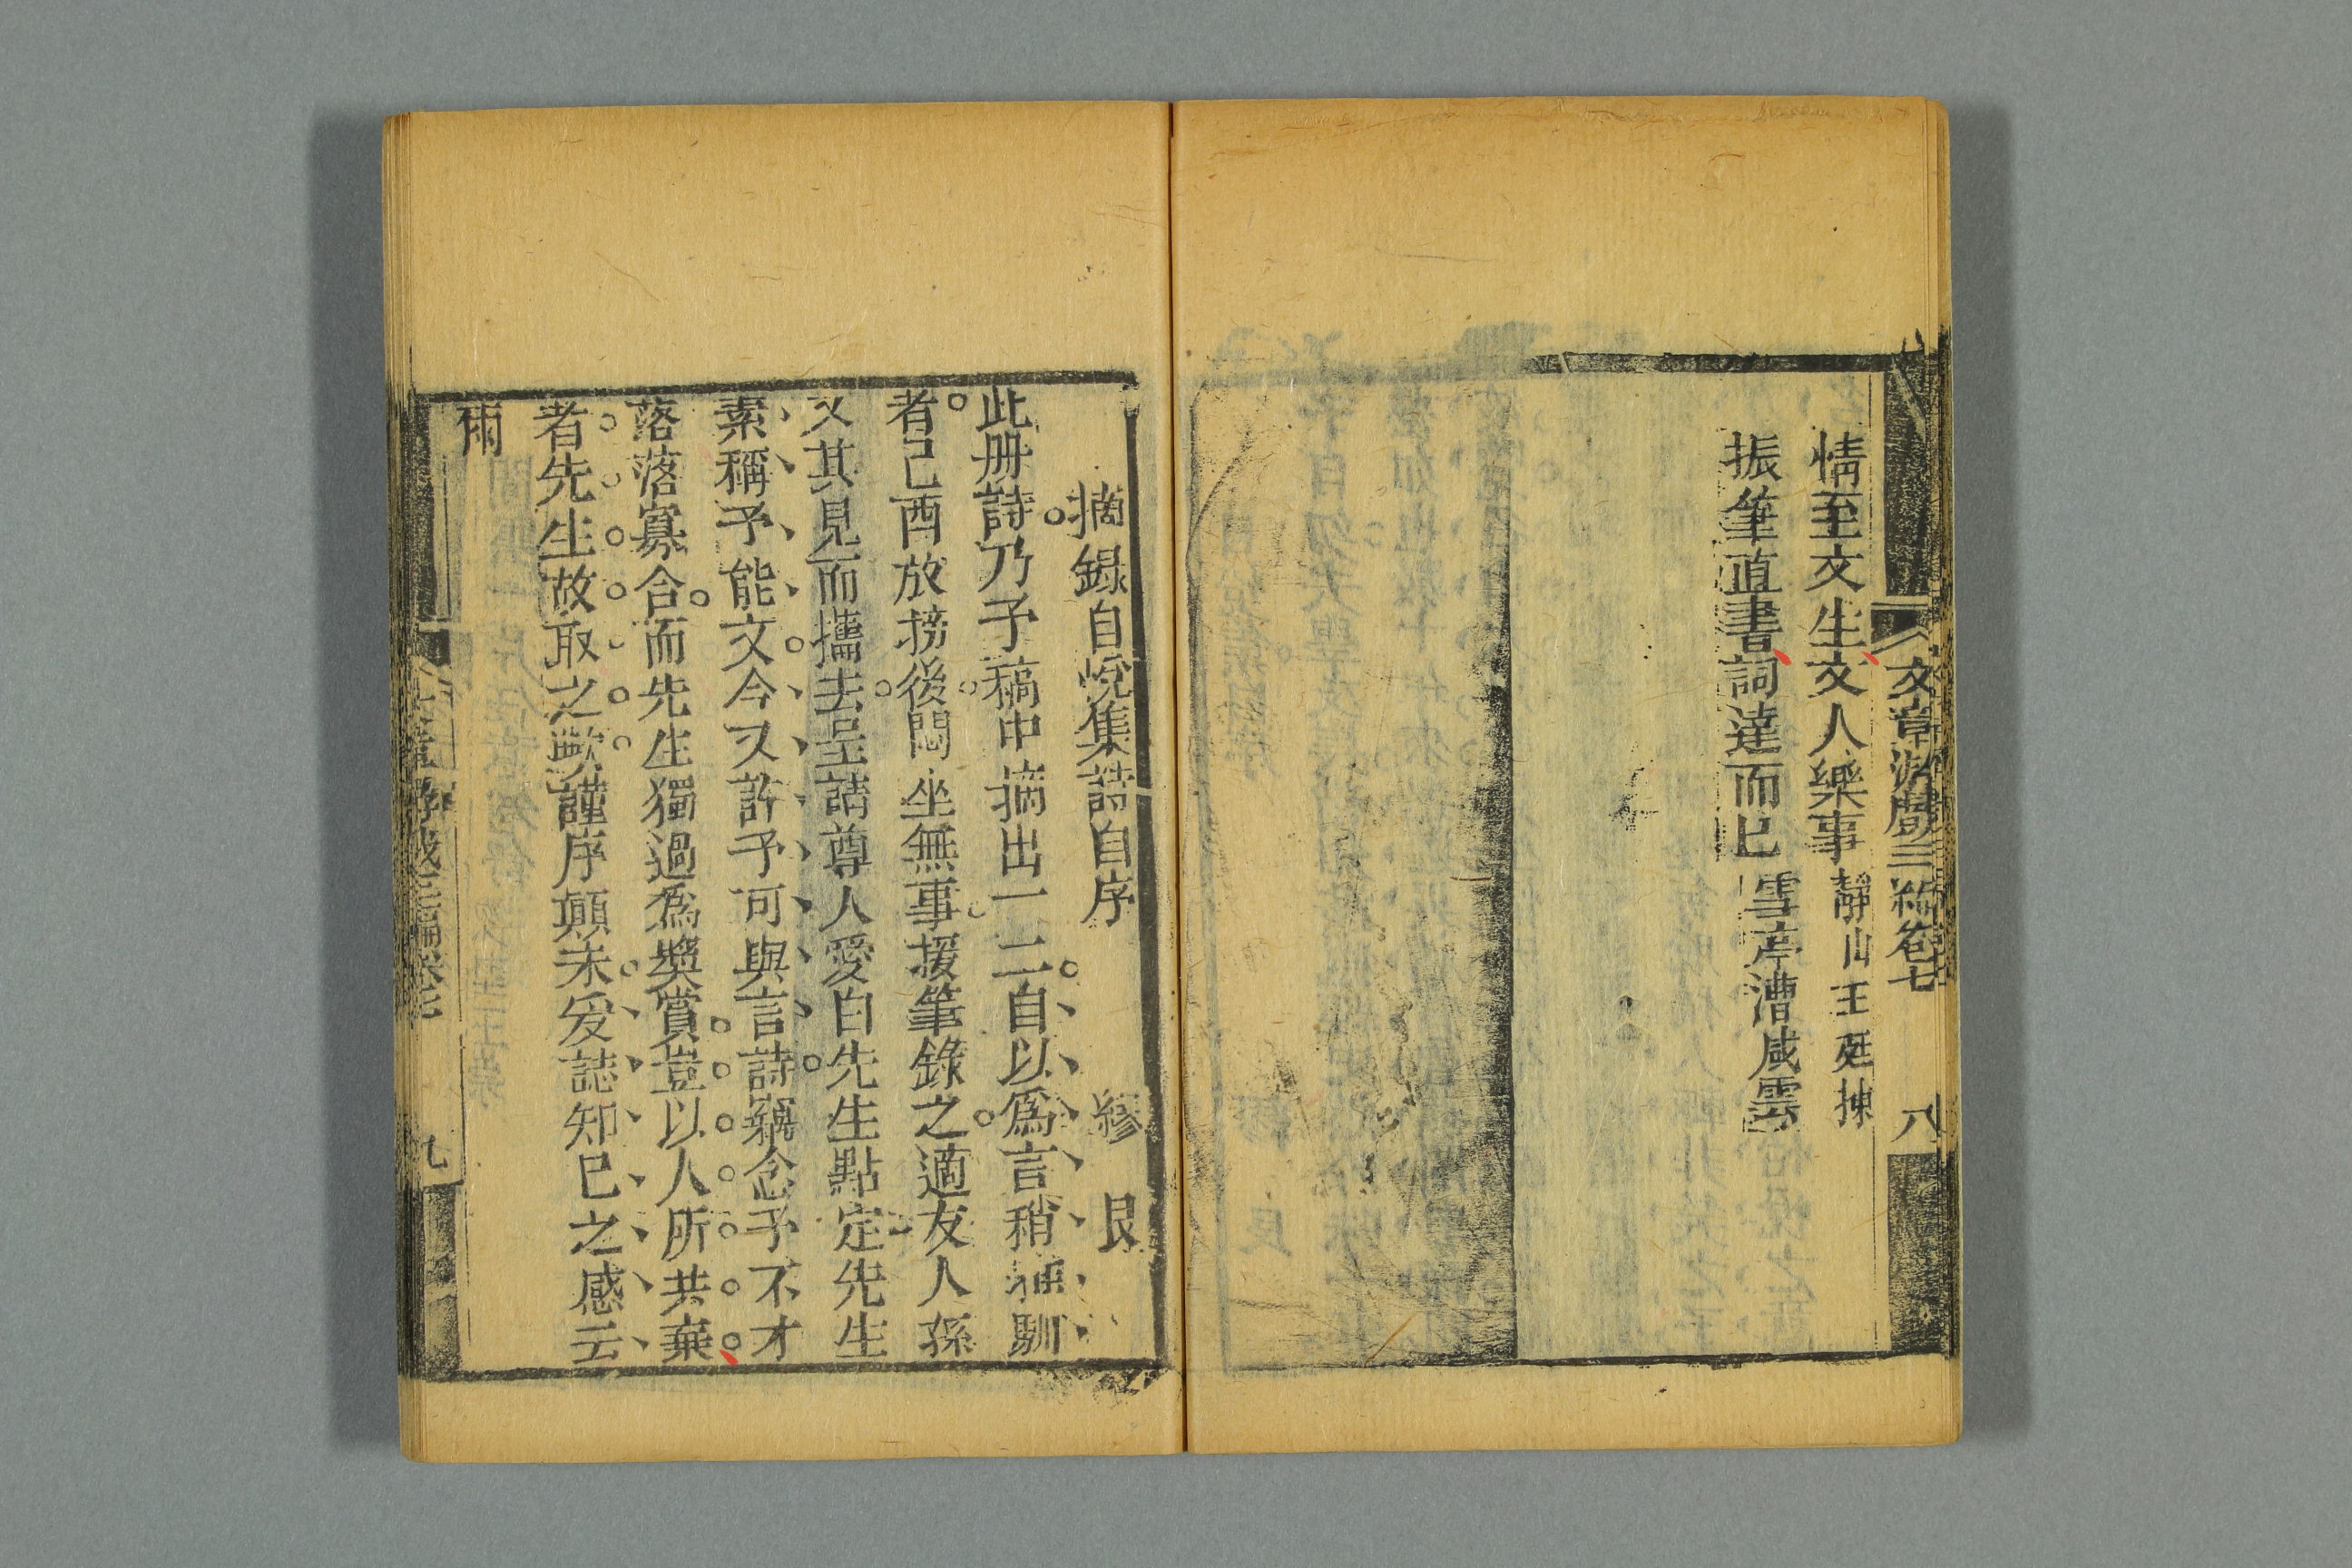 文章游戲三編卷七　八
情至文生文人樂事靜山王廷揀
振筆直書詞達而已雪亭漕咸雲
摘錄自悅集詩自序　繆艮
此册詩乃予稿中摘出一二自以爲言稍雅馴
者己酉放榜後悶坐無事援筆錄之適友人孫
又其見而攜去呈請尊人愛白先生點定先生
素稱予能文今又許予可與言詩竊念予不才
落落寡合而先生獨過爲奬賞豈以人所共棄
者先生故取之歟謹序顚末爰誌知已之感云
爾
三編卷七　九